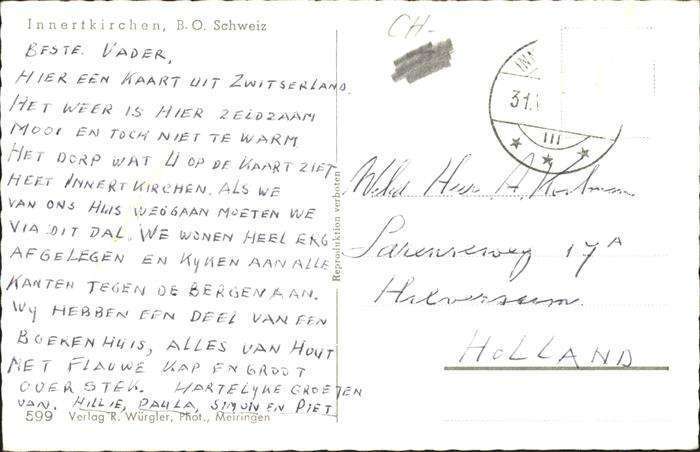 Innertkirchen, B.O. Schweiz
BESTE VADER,
HIER EEN KAART UIT ZWITSERLAND.
HET WEER IS HIER ZELDZAAM
MOOI EN TOCH NIET TE WARM
HET DORP WAT U OP DE KAART ZIET
HEET INNERTKIRCHEN. ALS WE
VAN ONS HUIS WEGGAAN MOETEN WE
VIA DIT DAL. WE WONEN HEEL ERG
AFGELEGEN EN KYKEN AAN ALLE
KANTEN TEGEN DE BERGEN AAN.
WY HEBBEN EEN DEEL VAN EEN
BOERENHUIS, ALLES VAN HOUT
MET FLAUWE KAP EN GROOT
OVERSTEK. HARTELYKE GROETEN
VAN. HILLIE, PAULA, SIMON EN PIET
599 Verlag R. Würgler, Phot., Meiringen
Reproduktion verboten
CH-
INN
31.
III
Heer A.
17A
Hilversum.
HOLLAND